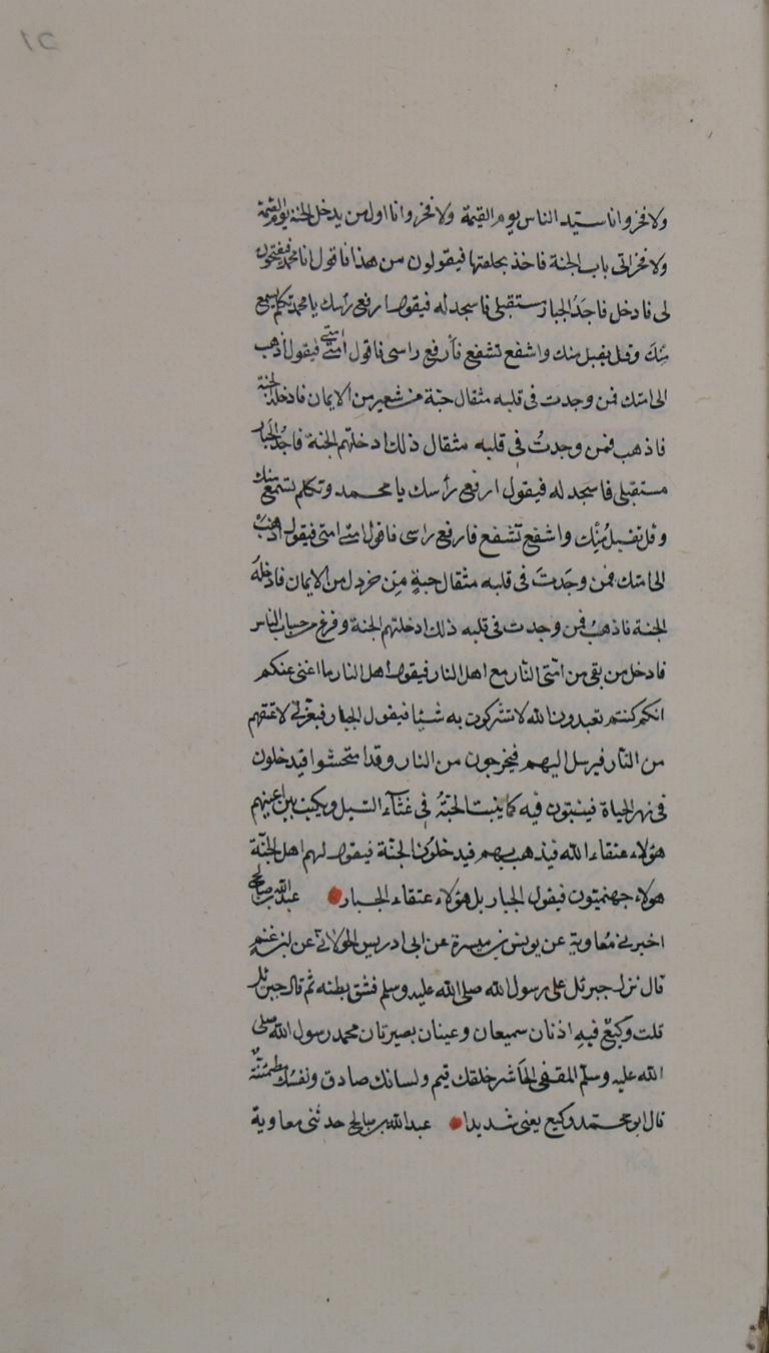 ولا فخر وانا سيد الناس يوم القيمة ولا فخر وانا اول من يدخل الجنة يوم القيمة
ولا فخر اتى باب الجنة فاخذ بحلقتها فيقولون من هذا فاقول انا محمد فيفتحون
لى فادخل فاجد الجبار مستقبلى فاسجد له فيقول ارفع رأسك يا محمد تكلم يسمع
منك وقل يقبل منك واشفع تشفع فأرفع راسى فاقول امتى امتى فيقول اذهب
الى امتك فمن وجدت فى قلبه مثقال حبة من شعير من الايمان فادخله الجنة
فاذهب فمن وجدتُ فى قلبه مثقال ذلك ادخلتهم الجنة فاجد الجبار
مستقبلى فاسجد له فيقول ارفع رأسك يا محمد وتكلم تسمع منك
وقل تقبل منك واشفع تشفع فارفع راسى فاقول امتى امتى فيقول اذهب
الى امتك فمن وجدتَ فى قلبه مثقال حبةٍ مِن خردل من الايمان فادخله
الجنة فاذهبُ فمن وجدت فى قلبه ذلك ادخلتهم الجنة وفرغ من حساب الناس
فادخل من بقى من امتى النار مع اهل النار فيقول اهل النار ما اغنى عنكم
انكم كنتم تعبدون الله لا تشركون به شيئا فيقول الجبار فبعزتى لاعتقنهم
من النار فيرسل اليهم فيخرجون من النار وقد امتحشوا فيدخلون
فى نهر الحياة فينبتون فيه كما ينبت الحبّةُ فى غثآء السيل ويكتب بين اعينهم
هؤلاء عتقاء الله فيذهب بهم فيدخلون الجنّة فيقول لهم اهل الجنّة
هولاء جهنميّون فيقول الجبار بل هؤلاء عتقاء الجبار عبد الله بن صالح
اخبرنى مُعاوية عن يونس بن ميسرة عن ابى ادريس الخولانى عن ابن غنمٍ
قال نزل جبرئل على رسول الله صلى الله عليه وسلم فشق بطنه ثم قال جبرئل
قلت وكيعٌ فيهِ اذنان سميعان وعينان بصيرتان محمد رسول الله صلى
الله عليه وسلم المقفى الحَاشر خلقك قيم ولسانك صادق ونفسك مطمئنّة
قال ابو محمّد وكيع يعنى شديدا عبد الله بن صالح حدثنى معاوية